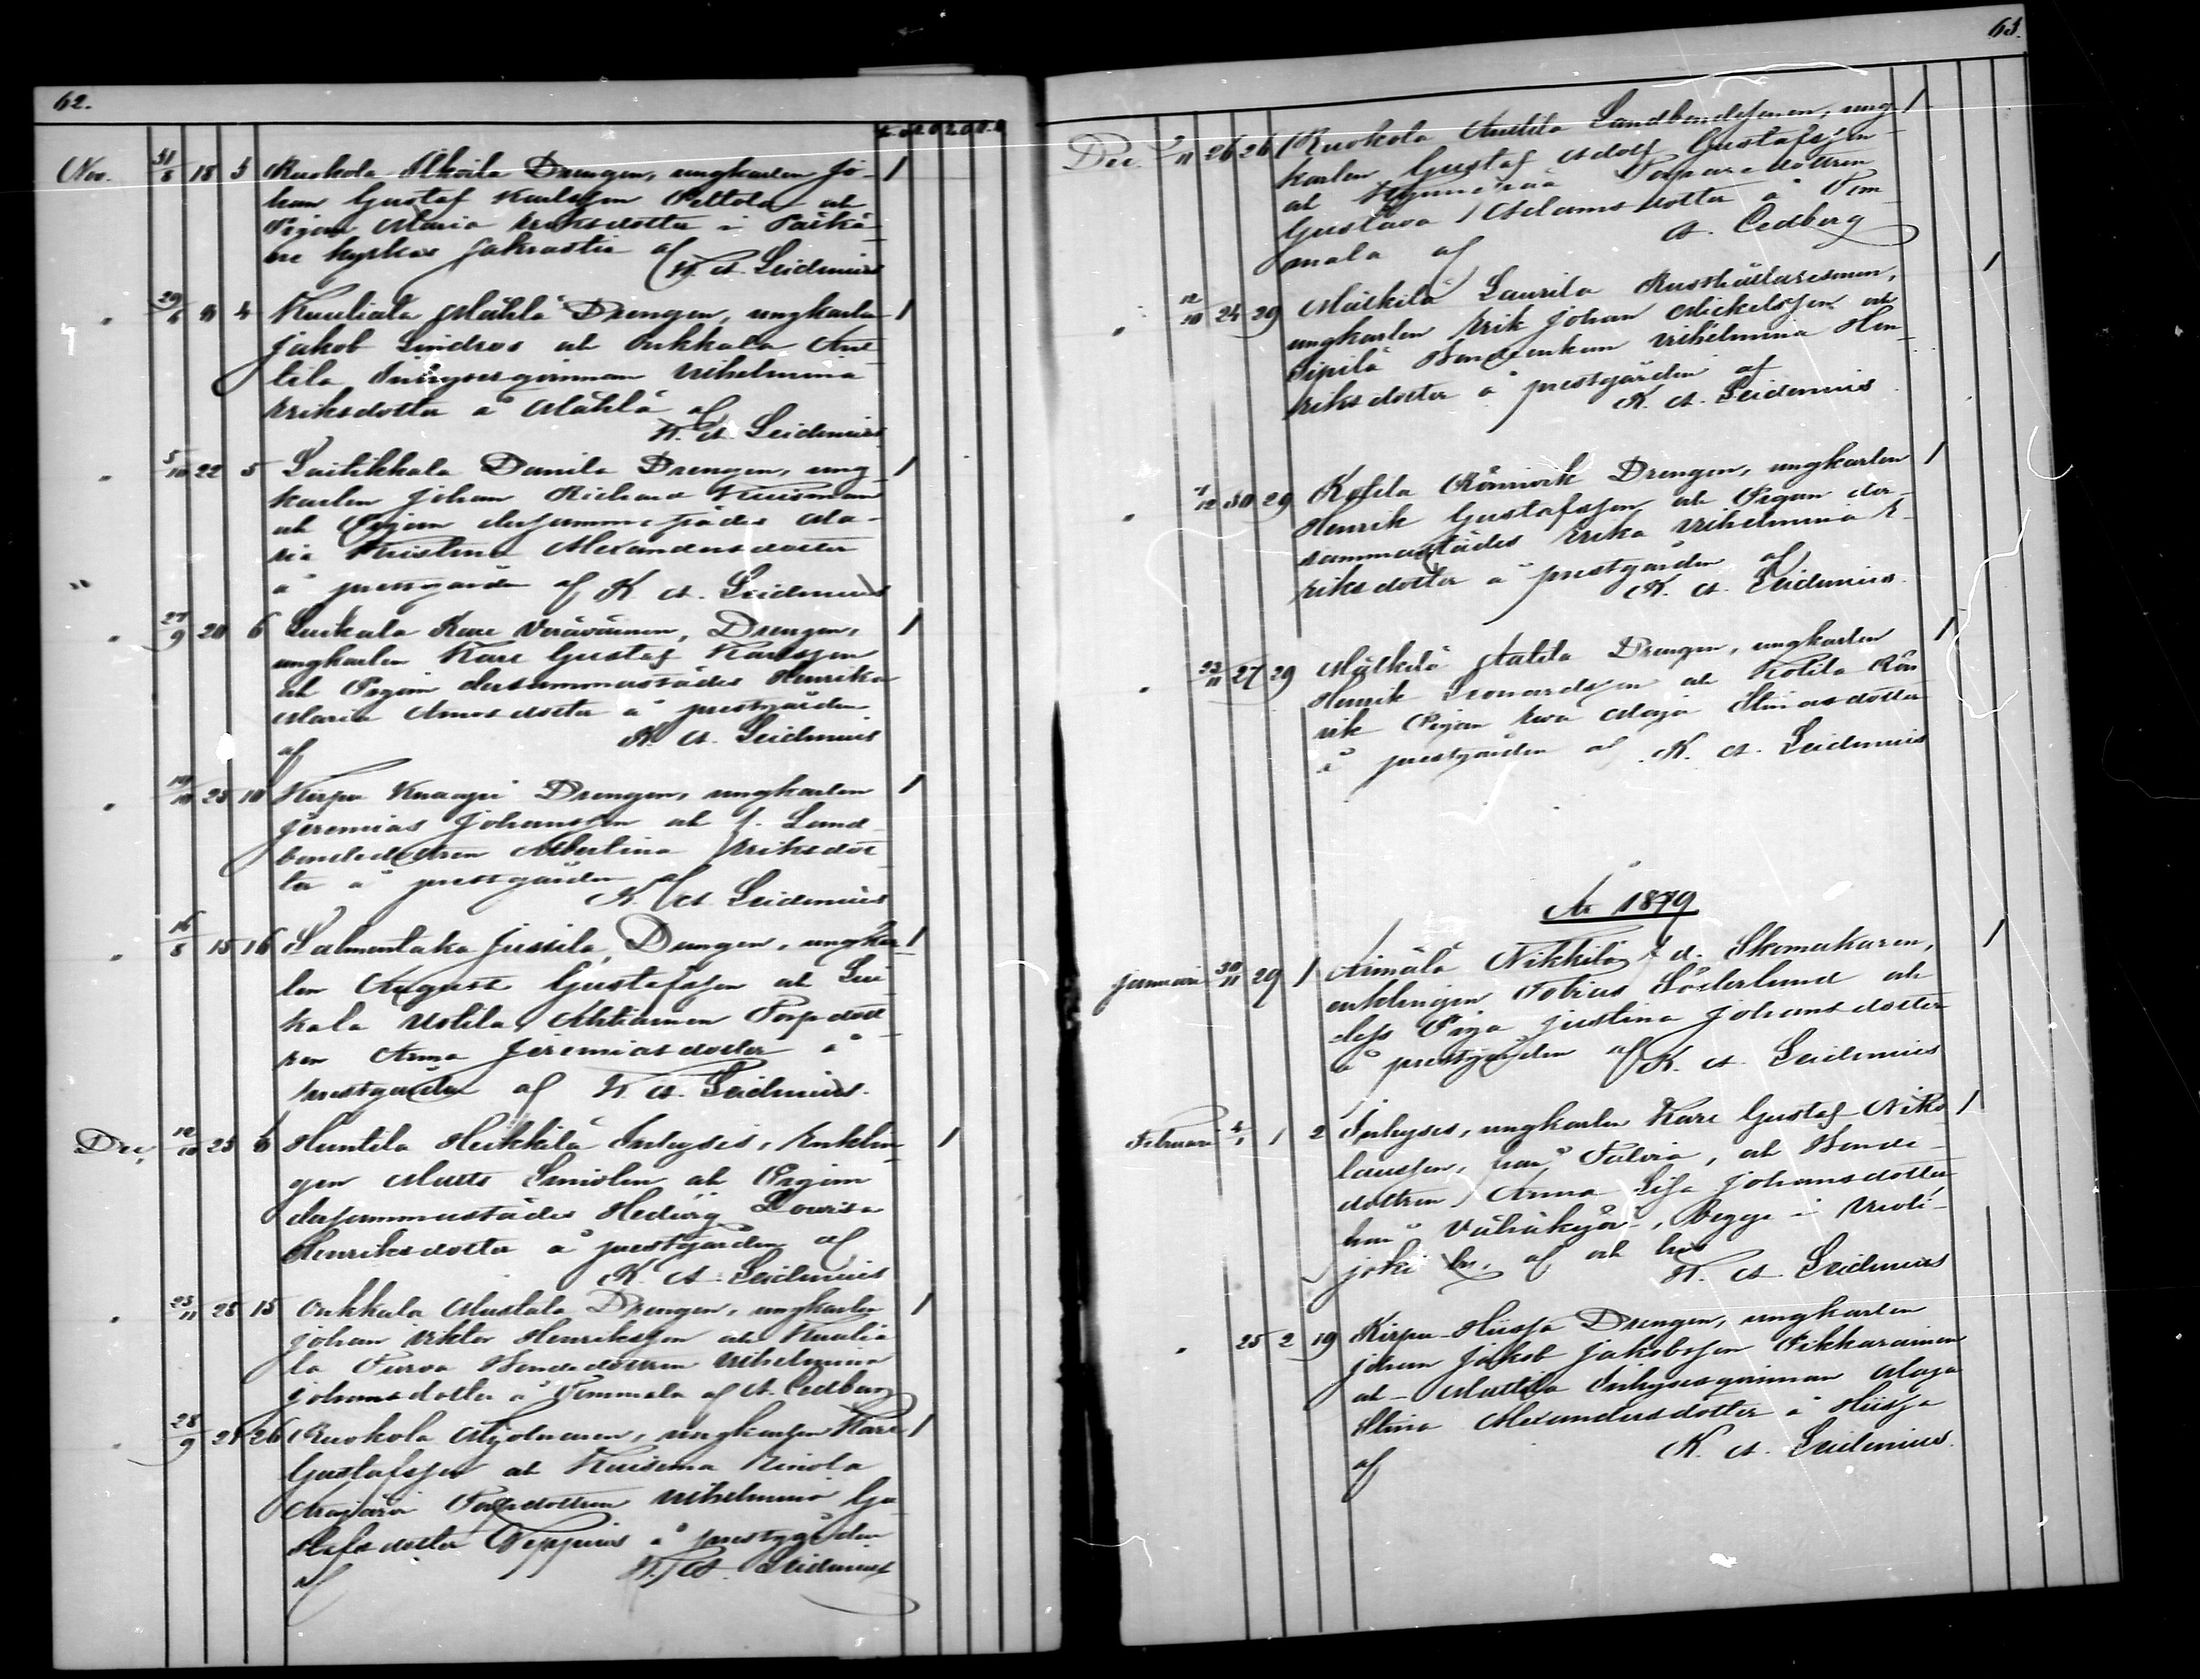 62.
Nov. 31/8 18 3 Ruokola Ilkoila Drengen, ungkarlen Jo- 1
han Gustaf Karlsson Peltola och
Pigan Maria Eriksdotter i Pälkä-
ne kyrkas sakrastia af
K. A. Leidenius
" 29/6 8 4 Kuuliala Mähla Drengen, ungkarlen 1
Jakob Lindros och Onkkala Ant-
tila Inhysesqvinnan Vilhelmina
Eriksdotter å Mähla af
K. A. Leidenius
" 5/10 22 5 Laitikkala Danila Drengen, ung- 1
karlen Johan Richard Kuisman
och Pigan dersammastädes Ma-
ria Kristina Alexandersdotter
å prestgården af K. A. Leidenius
" 27/9 20 6 Luikala Kare Drengen, 1
ungkarlen Karl Gustaf Karlsson
och Pigan dersammastädes Henrika
Maria Amosdotter å prestgården
af K. A. Leidenius
" 19/10 23 10 Kirpu Knaapi Drengen, ungkarlen 1
Jeremias Johansson och f. Land-
bondedottren Albertina Eriksdot-
ter å prestgården af
K. A. Leidenius
" 16/8 15 16 Salmentaka Jussila, Drengen, ungkar- 1
len August Gustafsson och Lui-
kala Uotila Ahtiainen Torpdott-
ren Anna Jeremiasdotter å
prestgården af K. A. Leidenius.
Dec. 12/10 23 6 Huntila Heikkilä Inhyses, Enklin- 1
gen Matts Smislen och Pigan
dersammastädes Hedvig Lovisa
Henriksdotter å prestgården af
K. A. Leidenius
" 23/11 25 15 Onkkala Mattala Drengen, ungkarlen 1
Johan Viktor Henriksson och Kuulia-
la Turva Bondedottren Vilhelmina
Johansdotter å Tommola af A. Cedberg
" 28/9 21 26 Ruokola Mjölnaren, ungkarlen Karl 1
Gustafsson och Kuisema Einola
Torpdottren Vilhelmina Gu-
stafsdotter å prestgården
af K. A. Leidenius
63.
Dec. 26 26 Ruokola Anttila Landbondesonen, ung- 1
karlen Gustaf Adolf Gustafsson
och Torparedottren
Gustava Adamsdotter å Tom-
mola af A. Cedberg
" 12/10 24 29 Mälkilä Laurila Rusthållaresonen, 1
ungkarlen Erik Johan Mickelsson och
Sipilä Bondeenkan Vilhelmina Hen-
riksdotter å prestgården af
K. A. Leidenius
" 1/12 30 29 Kotila Rönnvik Drengen, ungkarlen 1
Henrik Gustafsson och Pigan der-
sammastädes Erika Vilhelmina E-
riksdotter å prestgården af
K. A. Leidenius.
" 23/11 27 29 Mälkilä Aatila Drengen, ungkarlen 1
Henrik Leonardsson och Kotila Rön-
vik Pigan Eva Maja Eliasdotter
å prestgården af K. A. Leidenius
År 1879
Januari 30/11 29 1 Aimälä Nikkilä f. d. Skomakaren, 1
enklingen Tobias Söderlund och
dess Piga Justina Johansdotter
å prestgården af K. A. Leidenius
Februari 4/1 1 2 Inhyses, ungkarlen Karl Gustaf Niko- 1
lausson, från Talvia, och Bonde-
dottren Anna Lisa Johansdotter
från Vähäkyrö, begge i Urdi-
joki by, af och hos
K. A. Leidenius
" 25 2 19 Kirpu-Hiisja Drengen, ungkarlen
Johan Jakob Jakobsson Pikkarainen
och Mattila Inhysesqvinnan Maja
Stina Alexandersdotter å Hiisja
af K. A. Leidenius.